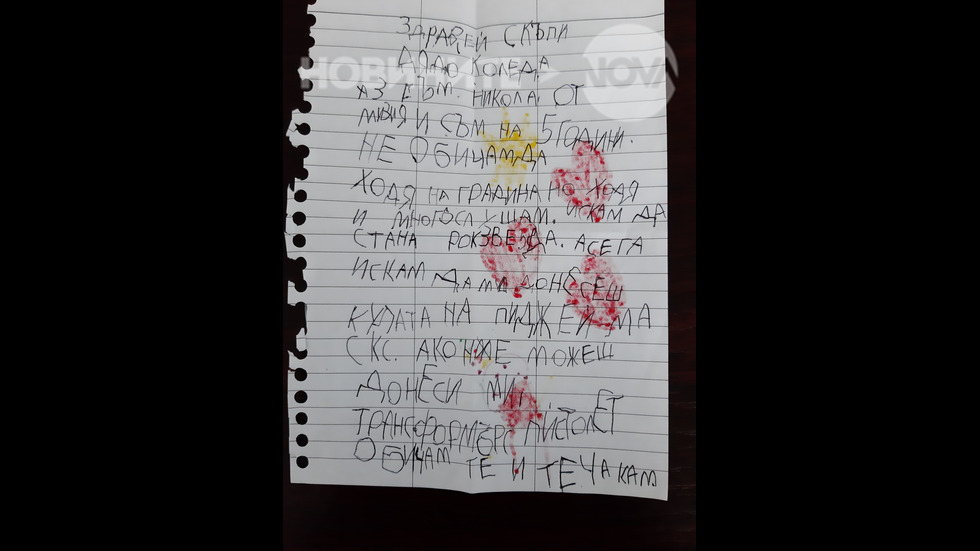 ЗДРАВЕЙ СКЪПИ
ДЯДО КОЛЕДА
АЗ СЪМ. НИКОЛА ОТ
МИЗИЯ И СЪМ НА 5 ГОДИНИ.
НЕ ОБИЧАМ ДА
ХОДЯ НА ГРАДИНА НО ХОДЯ
И МНОГО СЛУШАМ. ИСКАМ ДА
СТАНА РОКЗВЕЗДА. А СЕГА
ИСКАМ ДА МИ ДОНЕСЕШ
КУЛАТА НА ПИДЖЕЙ МА
СКС. АКО НЕ МОЖЕШ
ДОНЕСИ МИ
ТРАНСФОРМЪРС ПИСТОЛЕТ
ОБИЧАМ ТЕ И ТЕ ЧАКАМ
НОВИНИТЕ NOVA